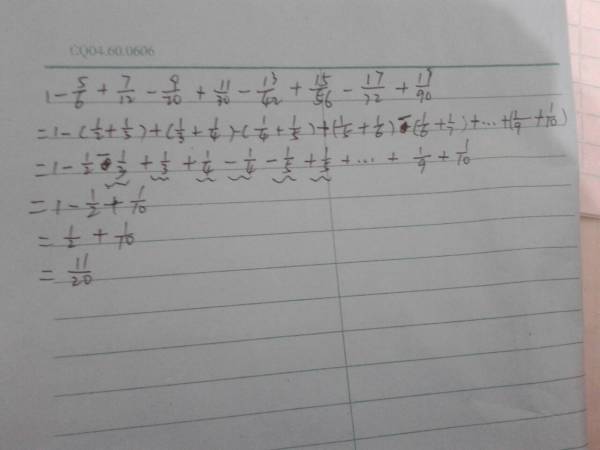 CQ04.60.0606
1 - 5/6 + 7/12 - 9/20 + 11/30 - 13/42 + 15/56 - 17/72 + 19/90
= 1 - (1/2 + 1/3) + (1/3 + 1/4) - (1/4 + 1/5) + (1/5 + 1/6) - (1/6 + 1/7) + ... + (1/9 + 1/10)
= 1 - 1/2 - 1/3 + 1/3 + 1/4 - 1/4 - 1/5 + 1/5 + ... + 1/9 + 1/10
= 1 - 1/2 + 1/10
= 1/2 + 1/10
= 11/20